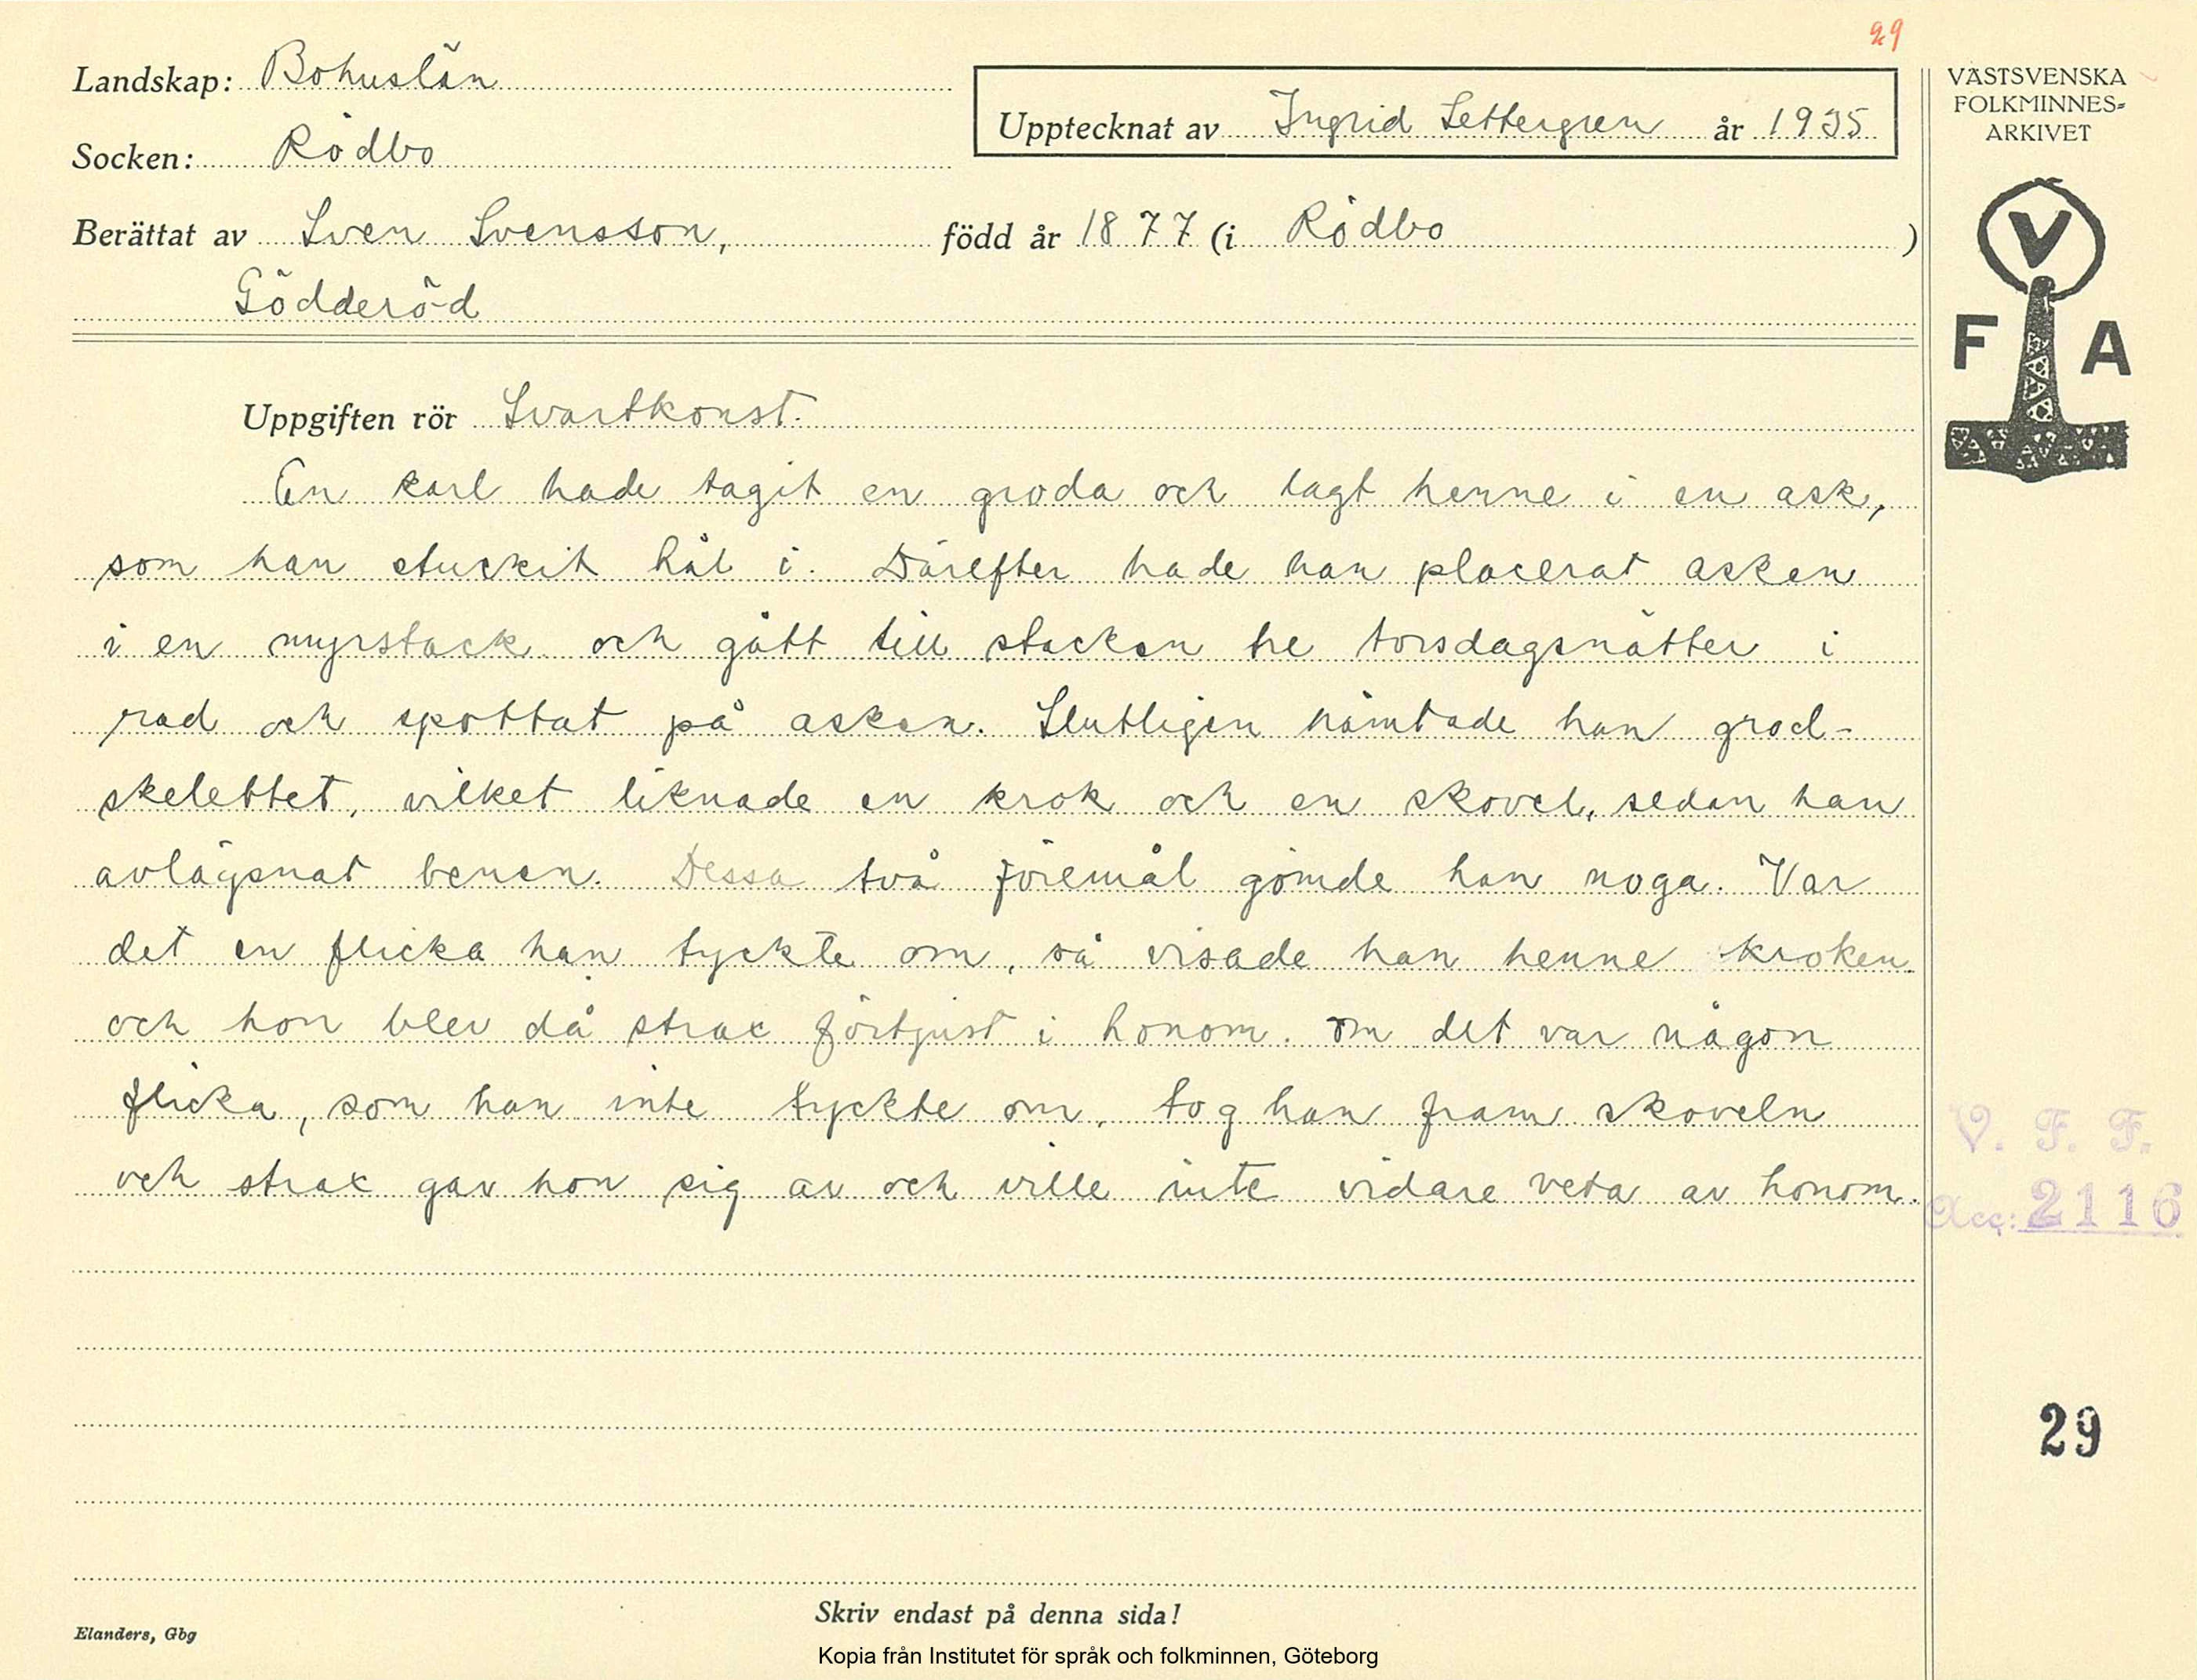 29
Landskap: Bohuslän
Socken: Rödbo
Upptecknat av Ingrid Settergren år 1935
Berättat av Sven Svensson, född år 1877 (i Rödbo )
Gödderöd
VÄSTSVENSKA
FOLKMINNES=
ARKIVET
V
F A
Uppgiften rör Svartkonst.
En karl hade tagit en groda och lagt henne i en ask,
som han stuckit hål i. Därefter hade han placerat asken
i en myrstack och gått till stacken tre torsdagsnätter i
rad och spottat på asken. Slutligen hämtade han grod-
skelettet, vilket liknade en krok och en skovel, sedan han
avlägsnat benen. Dessa två föremål gömde han noga. Var
det en flicka han tyckte om, så visade han henne kroken
och hon blev då strax förtjust i honom. Om det var någon
flicka, som han inte tyckte om, tog han fram skoveln
och strax gav hon sig av och ville inte vidare veta av honom.
V. F. F.
Acc: 2116
29
Skriv endast på denna sida!
Elanders, Gbg
Kopia från Institutet för språk och folkminnen, Göteborg